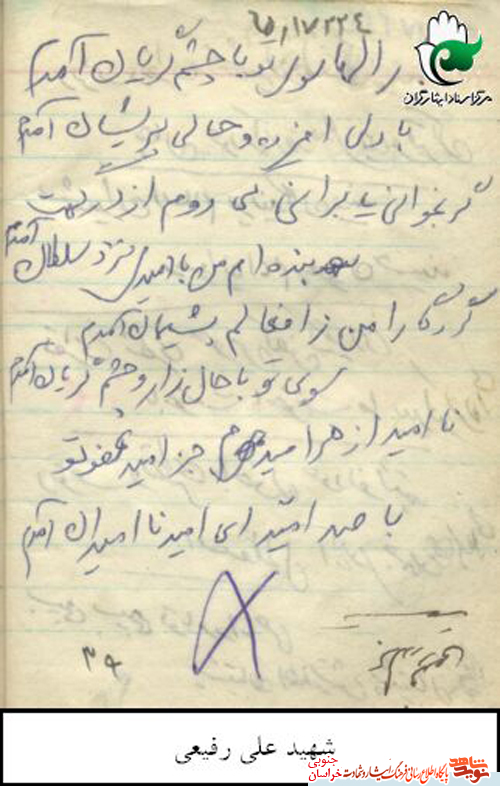 ۶۵,۱۷۲۲۴
بارالها سوی تو با چشم گریان آمدم
با دلی افسرده و حالی پریشان آمدم
گر بخوانی یا برانی کی روم از درگهت
بنده ام من با امیدی نزد سلطان آمدم
گر گنه کارم من ز افعالم پشیمان آمدم
سوی تو با حال زار و چشم گریان آمدم
نا امید از هر امیدم جز امید عفو تو
با صد امید ای امید نا امیدان آمدم
۳۹
مرکز اسناد ایثارگران
شهید علی رفیعی
نوید شاهد
پایگاه اطلاع رسانی فرهنگ ایثار و شهادت خراسان جنوبی